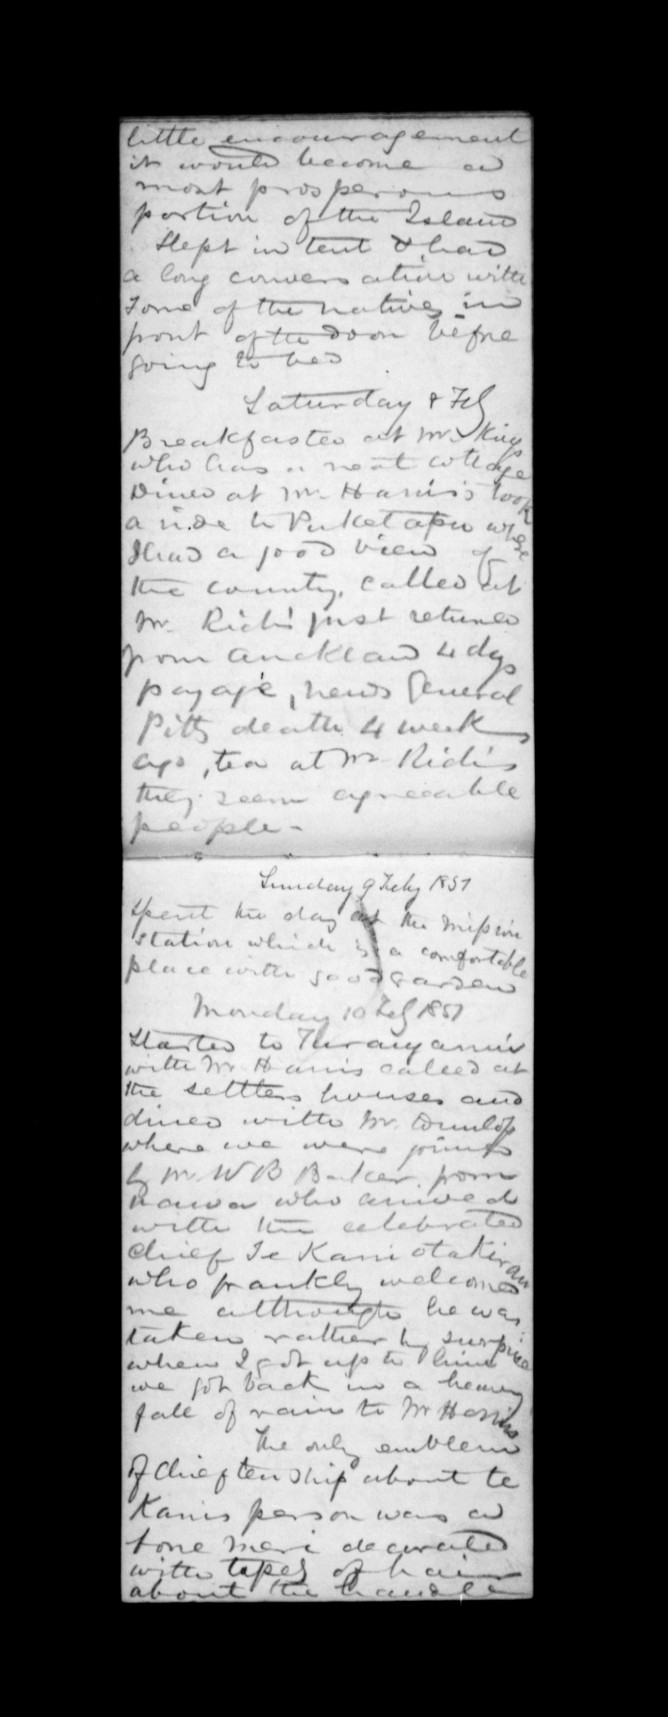 little encouragement
it would become a
most prosperous
portion of the Island
Slept in tent & had
a long conversation with
some of the natives in
front of the door before
going to bed
Saturday 8 Feby
Breakfasted at Mr. King
who has a neat cottage
Dined at Mr. Harris's took
a ride to Puketapu where
I had a good view of
the country, called at
Mr. Rich's just returned
from Auckland 4 dys
passage, news General
Pitts death 4 weeks
ago, tea at Mr Rich's
they seem agreeable
people -
Sunday 9 Feby 1851
Spent the day at the Mission
Station which is a comfortable
place with good garden
Monday 10 Feby 1851
Started to
with Mr Harris called at
the settlers houses and
dined with Mr. Dunlop
where we were joined
by Mr W B Baker from
who arrived
with the celebrated
chief Te Kani o takirau
who frankly welcomed
me although he was
taken rather by surprise
when I got up to him
we got back in a heavy
fall of rain to Mr Harris
The only emblem
of chieftenship about te
Kanis person was a
bone meri decorated
with tapes of hair
about the handle